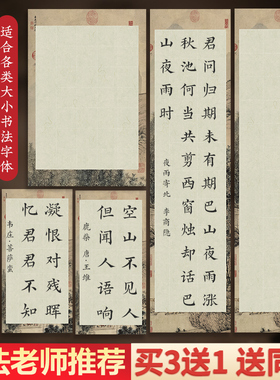 适合各类大小书法字体
君问归期未有期巴山夜雨涨
秋池何当共剪西窗烛却话巴
山夜雨时
夜雨寄北 李商隐
空山不见人
但闻人语响
鹿柴 唐·王维
凝恨对残晖
忆君君不知
韦庄·菩萨蛮
法老师推荐
买3送1 送同